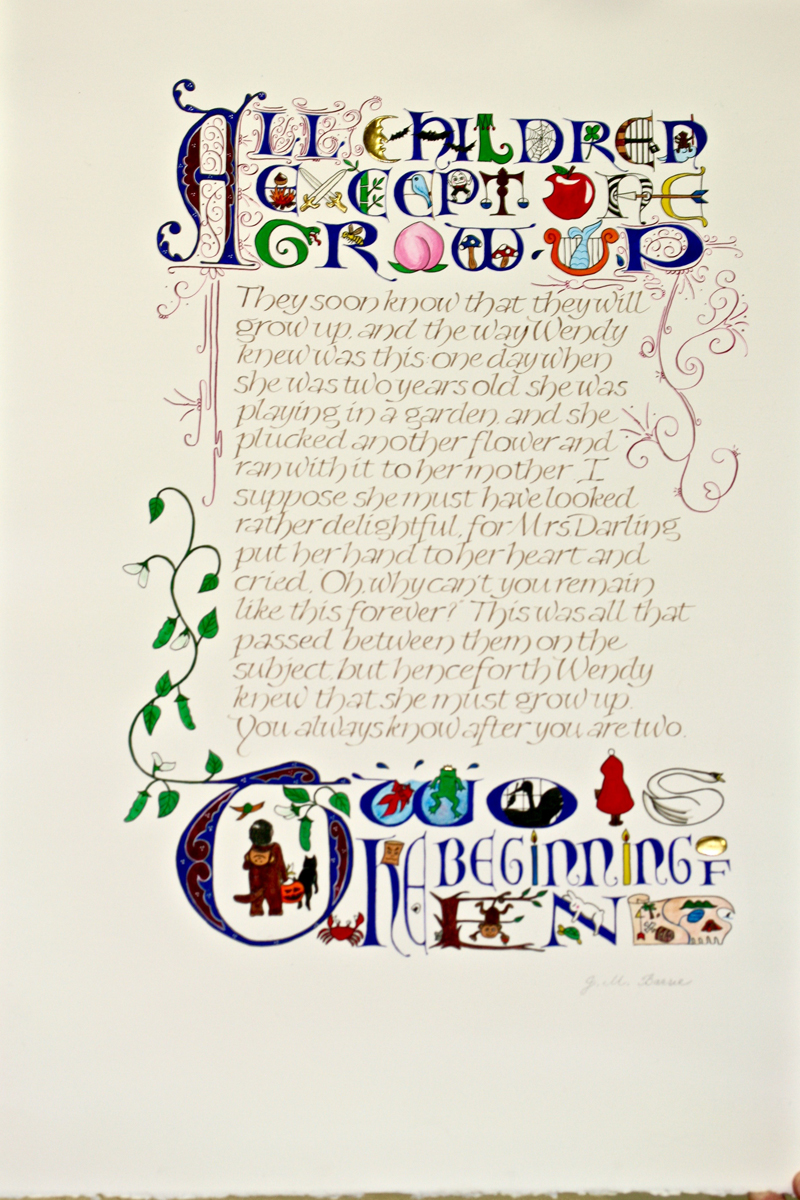 ALL CHILDREN
EXCEPT ONE
GROW UP
They soon know that they will
grow up, and the way Wendy
knew was this: one day when
she was two years old she was
playing in a garden, and she
plucked another flower and
ran with it to her mother. I
suppose she must have looked
rather delightful, for Mrs Darling
put her hand to her heart and
cried, Oh, why can't you remain
like this forever!' This was all that
passed between them on the
subject, but henceforth Wendy
knew that she must grow up.
You always know after you are two.
TWO IS
THE BEGINNING OF
THE END
J. M. Barrie